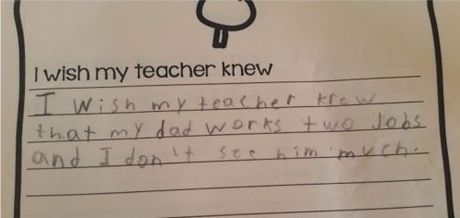 I wish my teacher knew
I wish my teacher knew
that my dad works two Jobs
and I don't see him much.